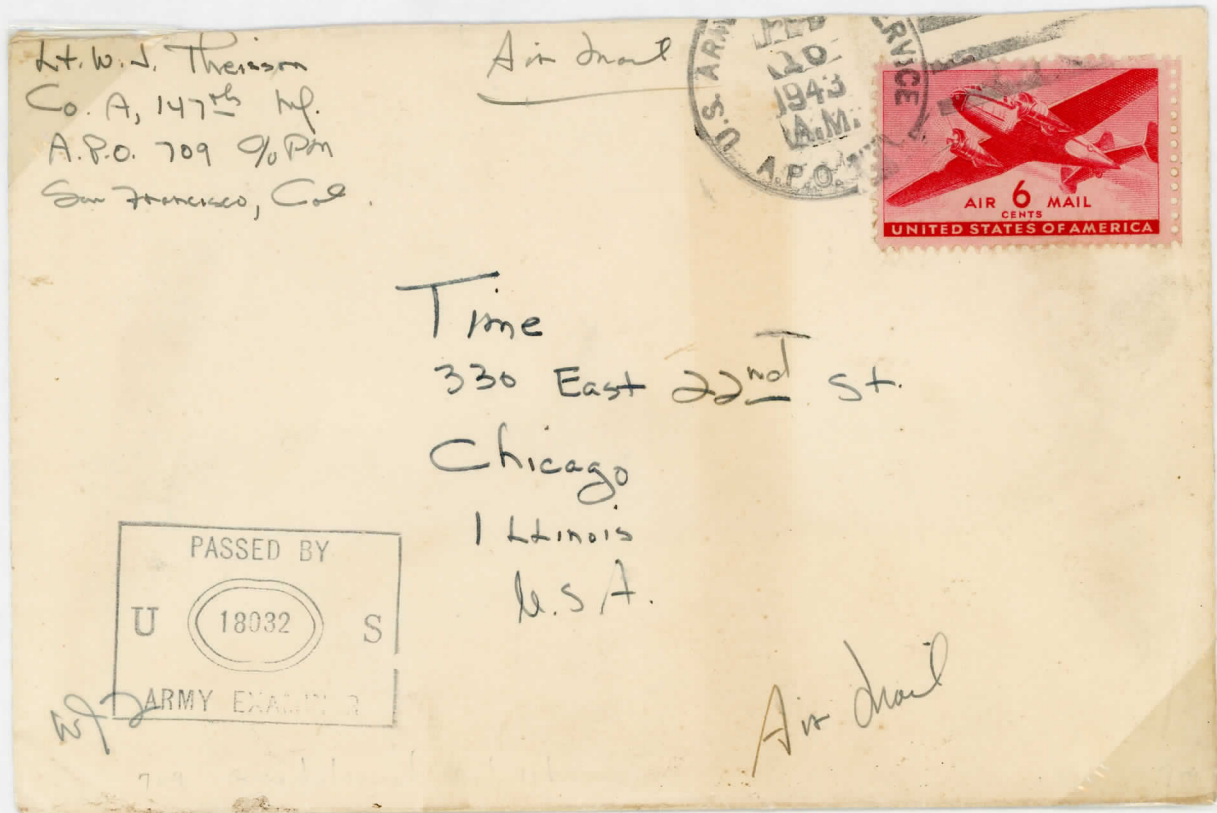 Lt. W. J. Theisson
Co. A, 147th Inf.
A.P.O. 709 c/o PM
San Francisco, Cal.
Air Mail
U.S. ARMY SERVICE
FEB
20
1943
A.M.
A.P.O.
AIR 6 MAIL
CENTS
UNITED STATES OF AMERICA
Time
330 East 22nd St.
Chicago
Illinois
U.S.A.
PASSED BY
U 18032 S
ARMY EXAMINER
WJT
Air Mail